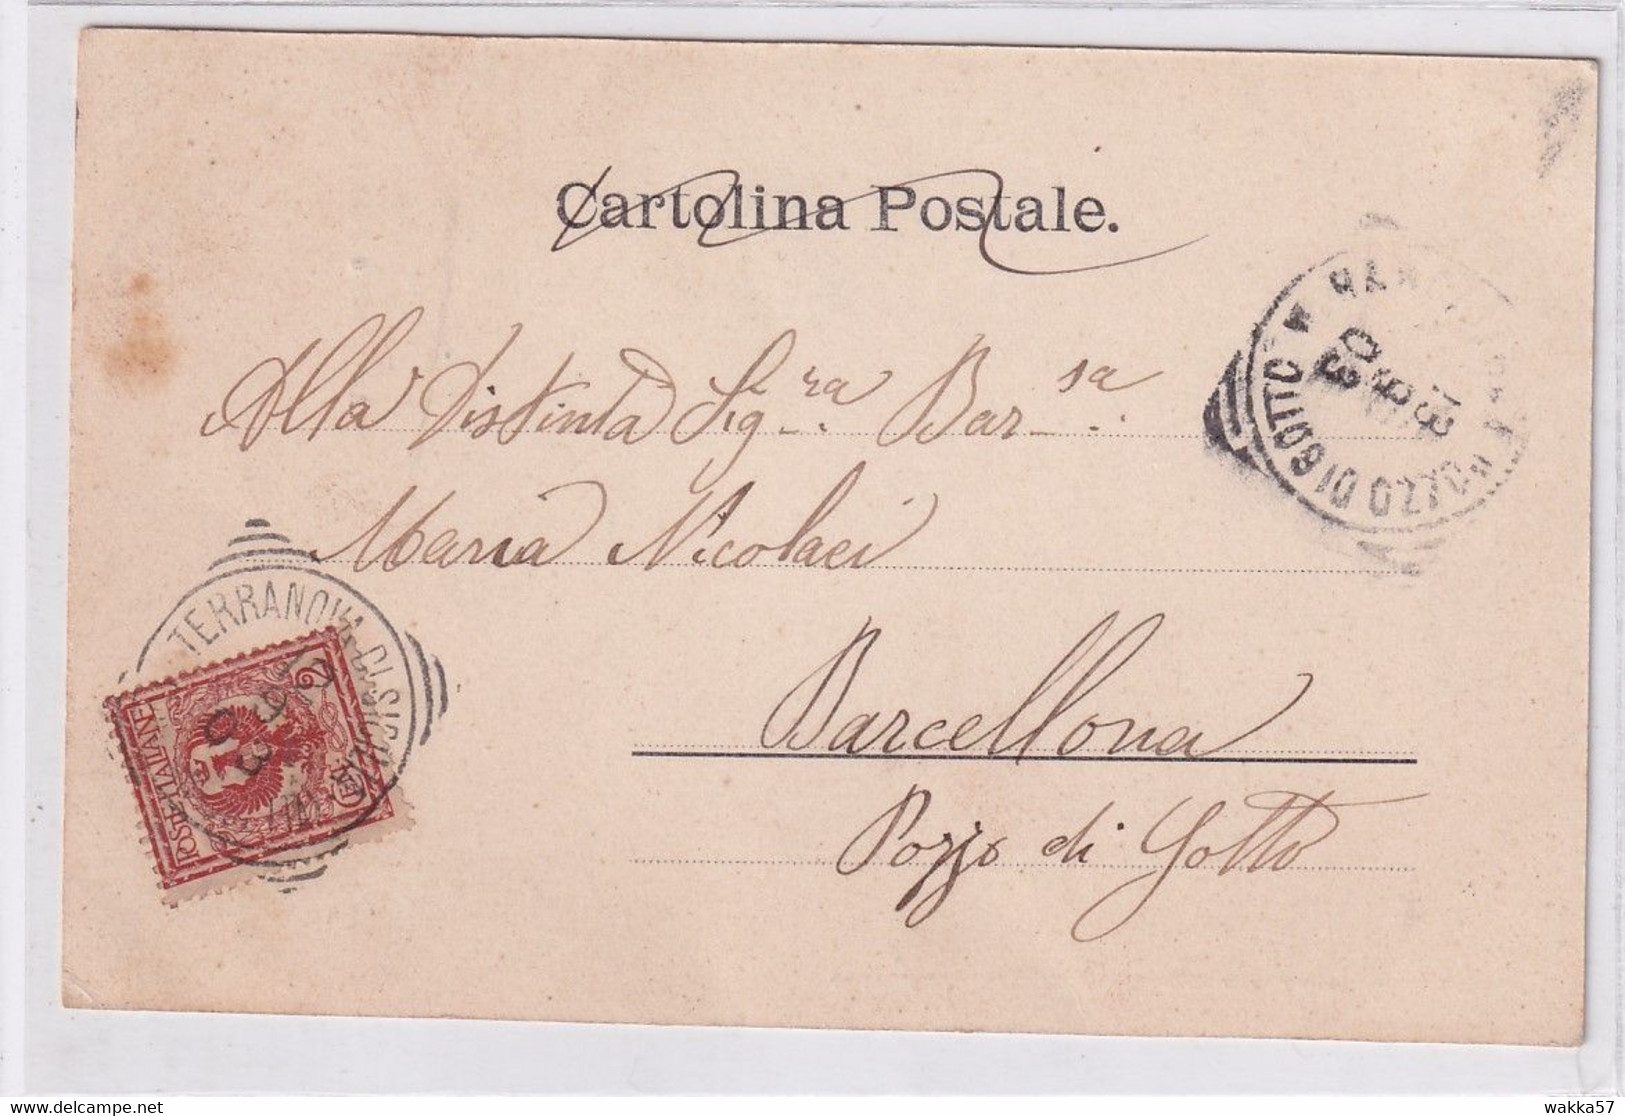 Cartolina Postale.
Alla Distinta Sig.ra Bar.sa
Maria Nicolaci
Barcellona
Pozzo di Gotto
TERRANOVA DI SICILIA
12
9
03
POSTE ITALIANE
2
POZZO DI GOTTO
13 9
03
wakka57